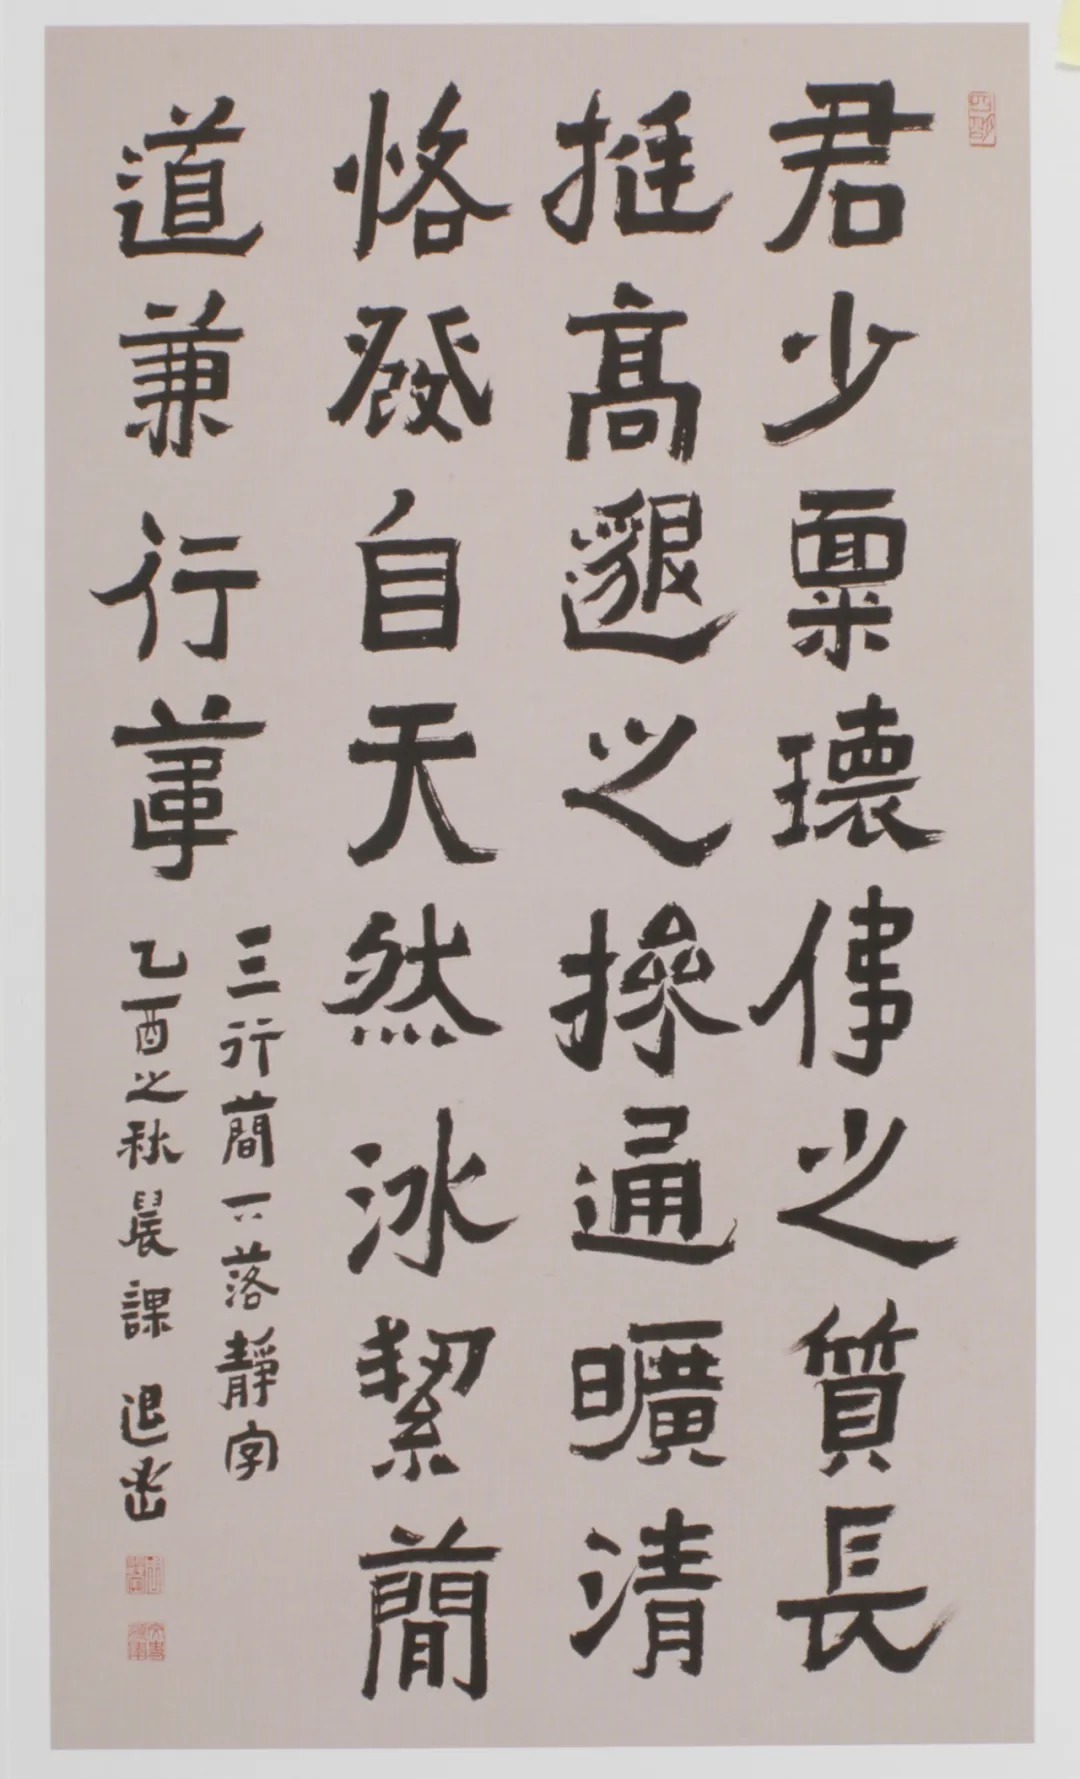 君少稟瓌偉之質長
挺高邈之操通曠清
恪發自天然冰絜簡
道兼行葦
三行簡下落靜字
乙酉之秋晨課 退密